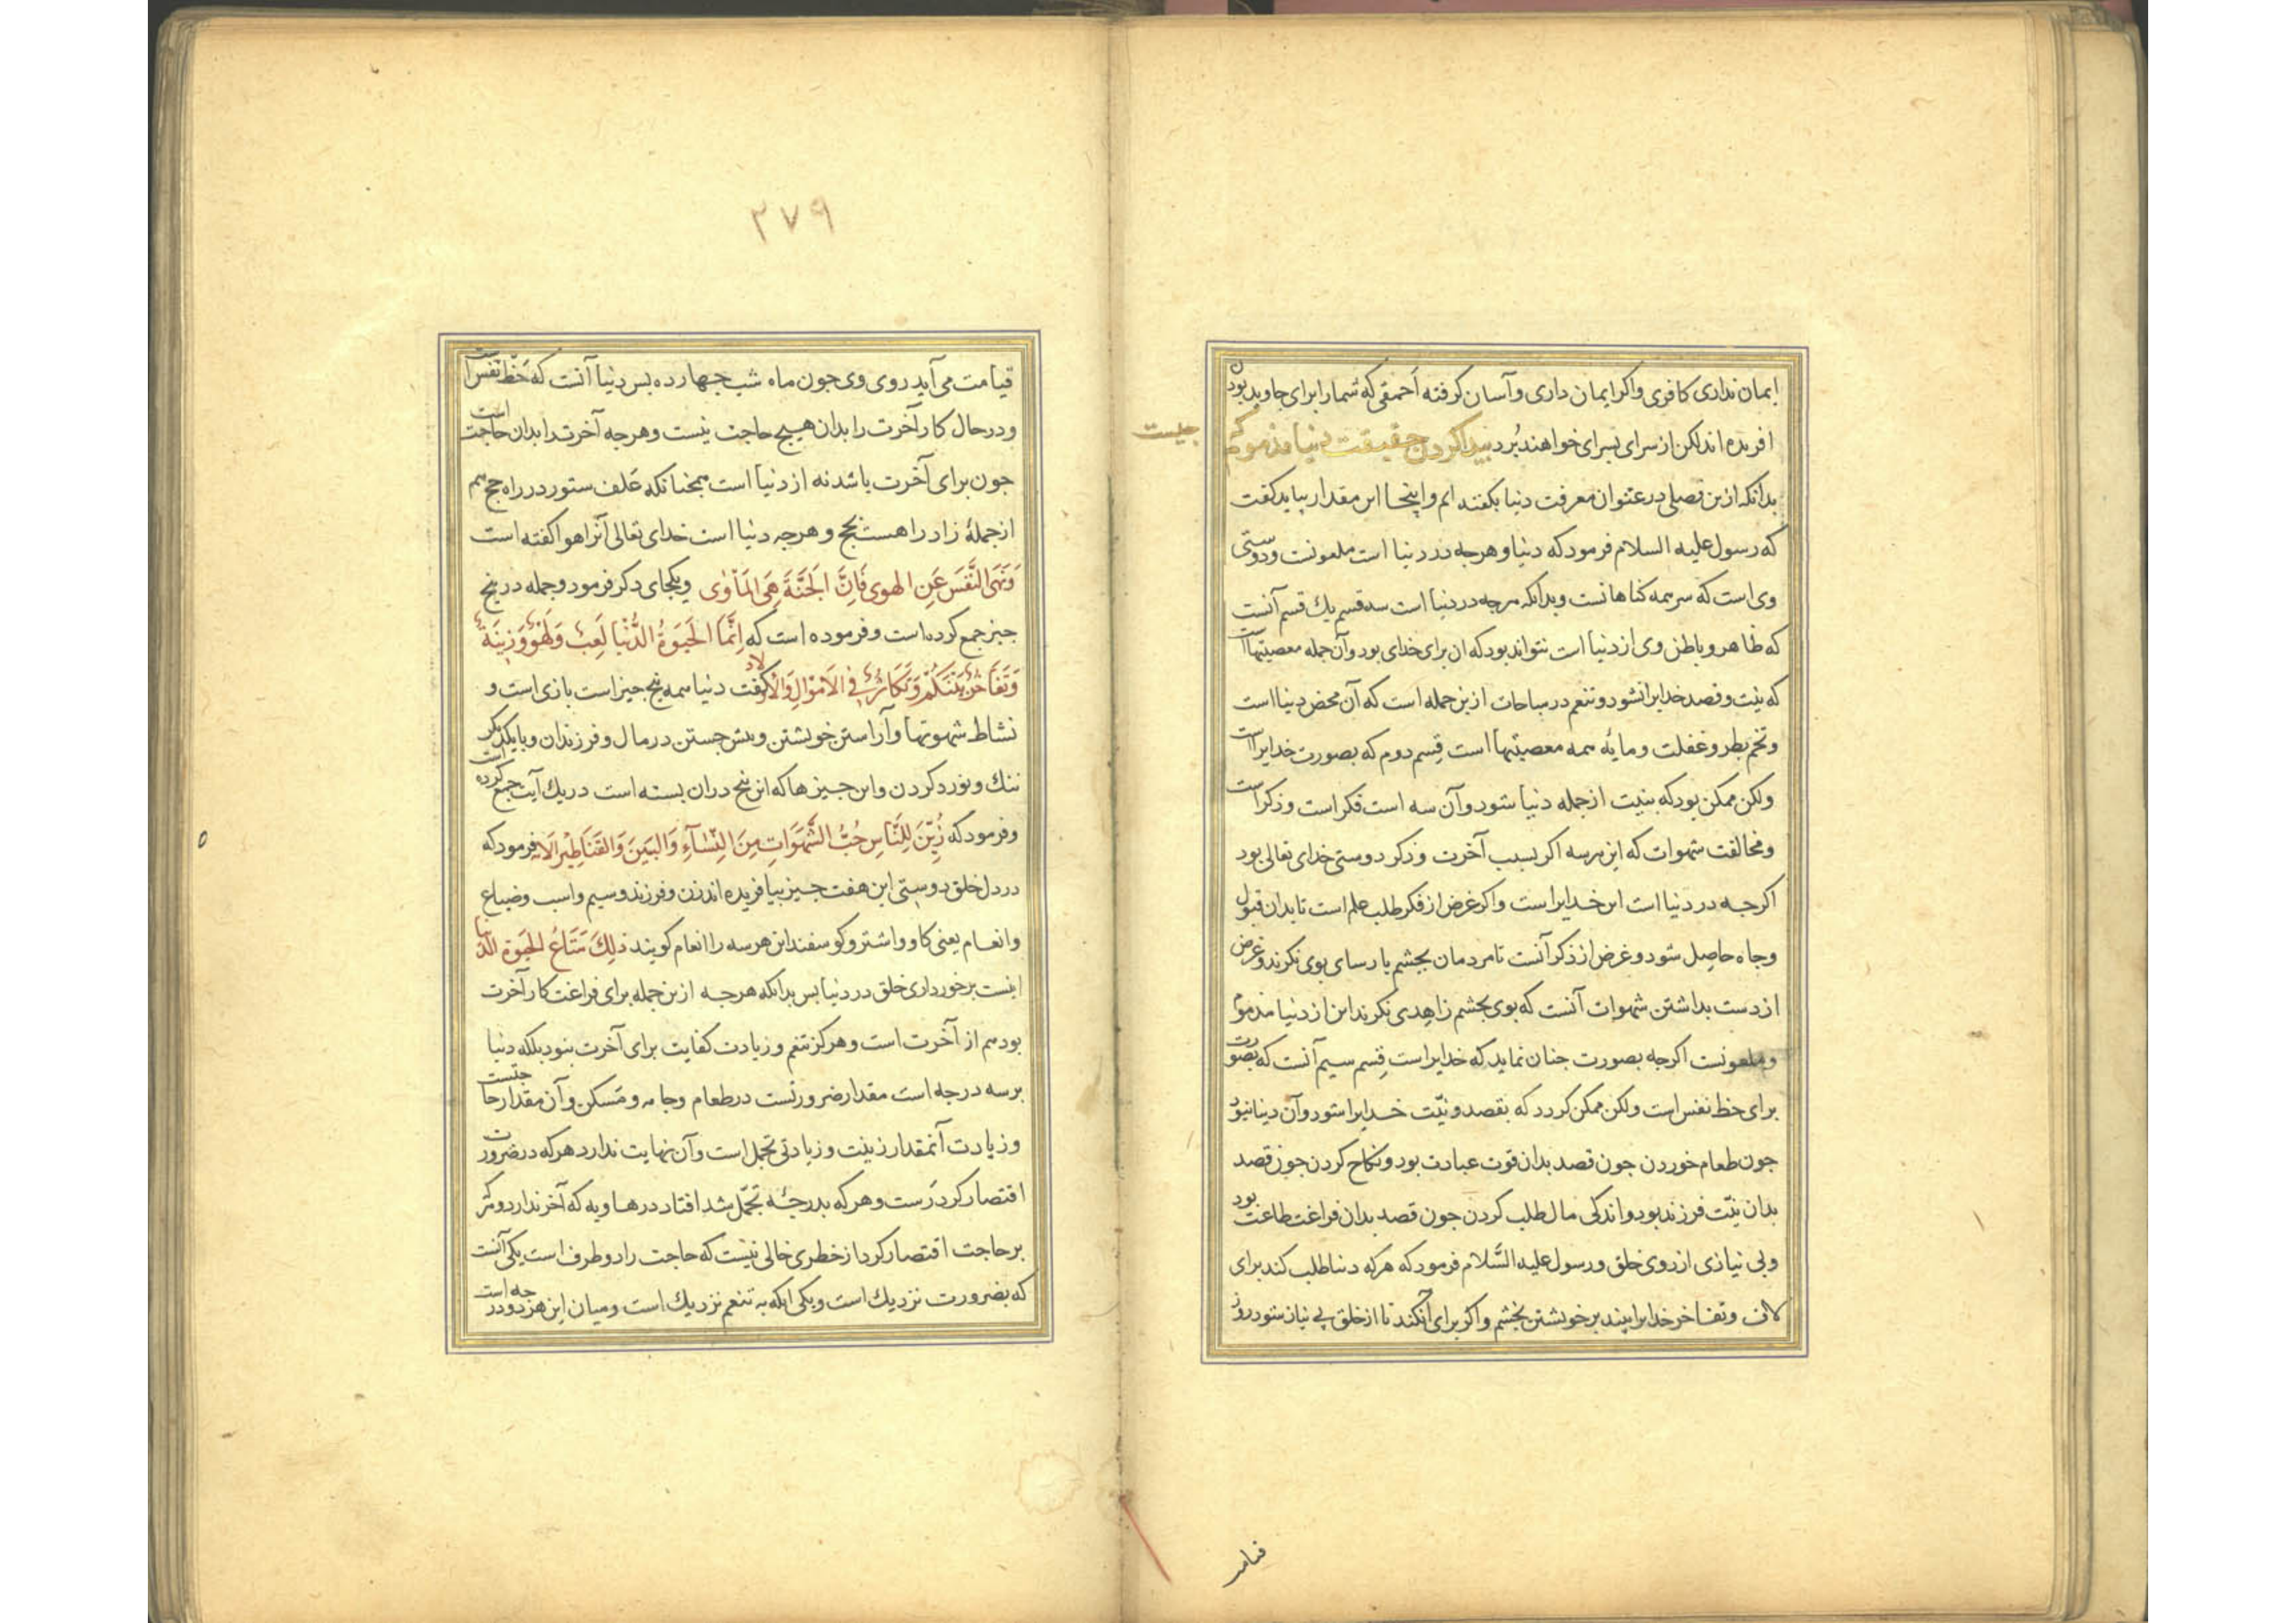 ایمان نداری کافری واکر ایمان داری وآسان کرفته احمقی که شمارا برای جاویدان بود
افریده اند لکن از سرای بسرای خواهند بُرد بیدا کردن حقیقت دنیا مذموم که
جیست
بدانکه ازین فصلی در عنوان معرفت دنیا بکفته ایم واینجا این مقدار بباید کفت
که رسول علیه السلام فرمود که دنیا وهرجه در دنیا است ملعونست ودوستی
وی است که سر همه کناهانست وبدانکه هرجه در دنیا است سه قسم یك قسم آنست
که ظاهر وباطن وی از دنیا است نتواند بود که ان برای خدای بود وآن جمله معصیتها است
که بنیت وقصد خدایرا نشود وتنعم در مباحات ازین جمله است که آن محض دنیا است
وتخم بطر وغفلت ومایه همه معصیتها است قِسم دوم که بصورت خدایرا است
ولکن ممکن بود که بنیت ازجمله دنیا شود وآن سه است فکر است وذکر است
ومخالفت شهوات که این هرسه اکر بسبب آخرت وذکر دوستی خدای تعالی بود
اکرجه در دنیا است این خدایراست واکر غرض از فکر طلب علم است تا بدان قبول
وجاه حاصِل شود وغرض از ذکر آنست تا مردمان بجشم بارسای بوی نکرند وغرض
ازدست بداشتن شهوات آنست که بوی بجشم زاهدی نکرند این از دنیا مذموم
وملعونست اکرجه بصورت جنان نماید که خدایراست قِسم سیم آنست که بصورت
برای حظ نفس است ولکن ممکن کردد که بقصد ونیّت خدایرا شود وآن دنیا نبود
جون طعام خوردن جون قصد بدان قوت عبادت بود ونکاح کردن جون قصد
بدان نیّت فرزند بود واندکی مال طلب کردن جون قصد بدان فراغت طاعت بود
وبی نیازی ازروی خلق ورسول علیه السَّلام فرمود که هرکه دنیا طلب کند برای
لاف وتفاخر خدایرا بیند برخویشتن بخشم واکر برای آنکند تا ازخلق بی نیاز شود روز
قیامت
٣٧٩
قیامت می آید روی وی جون ماه شب جهارده بس دنیا آنست که حَظّ نفس است
ودرحال کار آخرت را بدان هیج حاجت نیست وهرجه آخرت را بدان حاجت است
جون برای آخرت باشد نه از دنیا است همجنانکه عَلف ستور در راه حج هم
ازجملۀ زاد راهست بحج وهرجه دنیا است خدای تعالی آنرا هوا کفته است
وَنَهَى النَّفسَ عَنِ الهوى فَاِنَّ الجَنَّةَ هِىَ المَأوٰى وبکجای دکر فرمود وجمله در بنج
جیز جمع کرده است وفرموده است که اِنَّمَا الحَيٰوةُ الدُّنْيا لَعِبٌ وَلَهْوٌ وَزينَةٌ
وَتَفَاخُرٌ بَيْنَكُمْ وَتَكَاثُرٌ فِى الاَمْوَالِ وَالاَولاد کفت دنیا همه بنج جیز است بازی است و
نشاط شهوتها وآراستن خویشتن وبیش جستن درمال وفرزندان وبا یکدیکر
ننك ونورد کردن واین جیزها که این بنج دران بسته است دریك آیت جمع کرده است
وفرمود که زُيِّنَ لِلنَّاسِ حُبُّ الشَّهَوَاتِ مِنَ النِّسَآءِ وَالبَنينَ وَالقَنَاطِيْرِ الآیه فرمود که
دردل خلق دوستی این هفت جیز بیافریده اند زن وفرزند وسیم واسب وضیاع
وانعام یعنی کاو واشتر وکوسفند این هرسه را انعام کویند ذلِكَ مَتَاعُ الحَيٰوةِ الدنيا
اینست برخورداری خلق در دنیا بس بدانکه هرجه ازین جمله برای فراغت کار آخرت
بود هم از آخرت است وهرکز تنعم وزیادت کفایت برای آخرت نبود بلکه دنیا
برسه درجه است مقدار ضرورتست درطعام وجامه ومَسکن وآن مقدار حاجتست
وزیادت آنمقدار زینت وزیادتی تجمل است وآن نهایت ندارد هرکه درضرورت
اقتصار کرد رَست وهرکه بدرجۀ تجمّل شد افتاد درهاویه که آخر ندارد وهرکه
برحاجت اقتصار کرد ازخطری خالی نیست که حاجت را دو طرف است یکی آنست
که بضرورت نزدیك است ویکی آنکه به تنعم نزدیك است ومیان این هردو درجه است